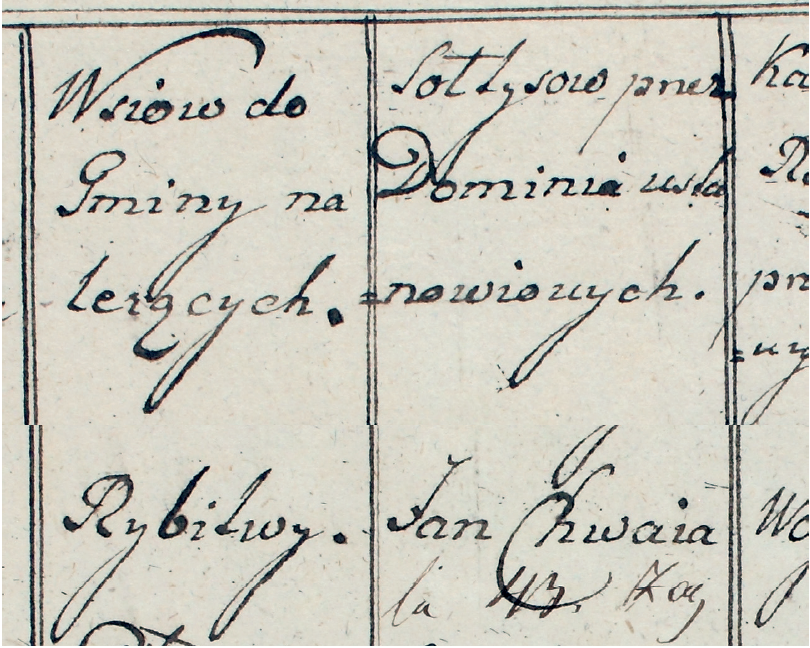 Wsiow do
Gminy na
lezących.
Sołtysow przez
Dominia usta
=nowionych.
Ka
pn
Rybitwy.
Jan Chwaia
la
Wo